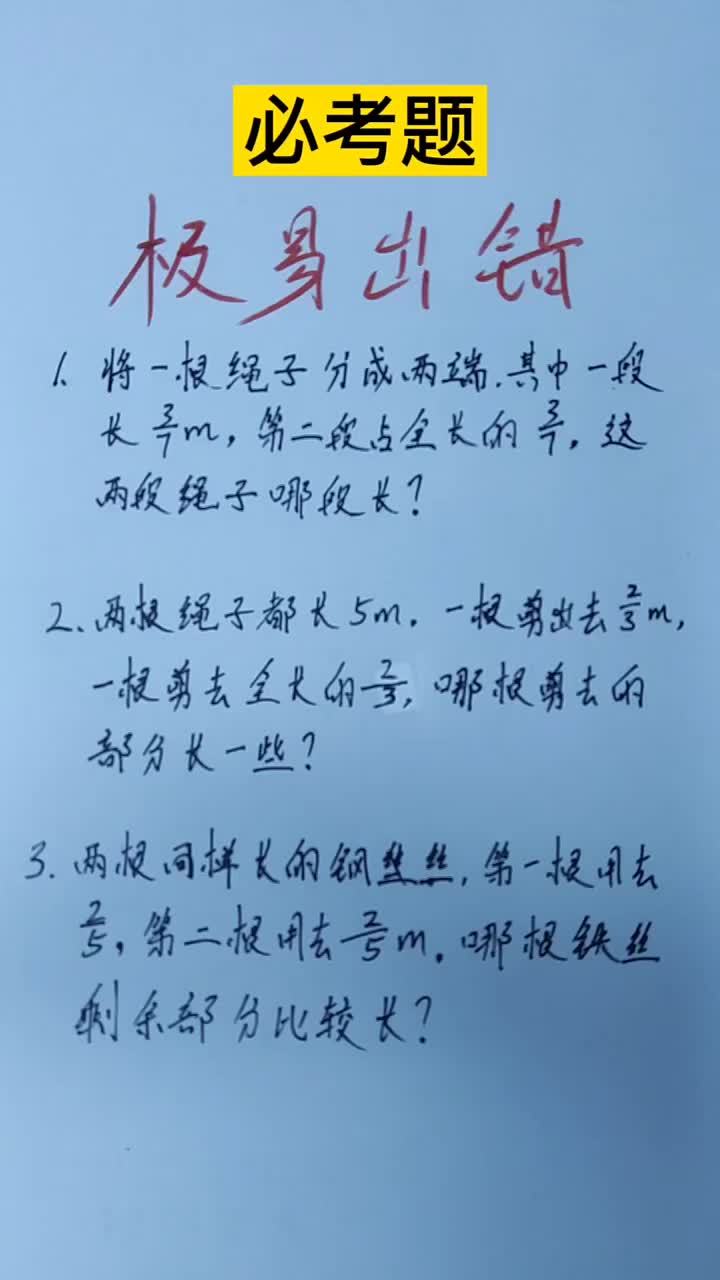 必考题
极易出错
1、将一根绳子分成两端.其中一段
长3/7m,第二段占全长的3/7,这
两段绳子哪段长?
2、两根绳子都长5m.一根剪出去2/3m,
一根剪去全长的2/3,哪根剪去的
部分长一些?
3、两根同样长的钢丝丝,第一根用去
2/5,第二根用去2/5m.哪根铁丝
剩余部分比较长?